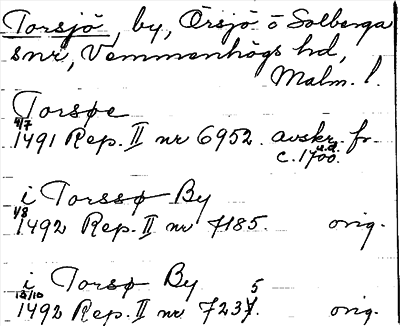 Torsjö, by, Örsjö o Solberga
snr, Vemmenhögs hd,
Malm. l.
Torsøe
4/7
1491 Rep. II nr 6952. avskr. fr.
u.d.
c. 1700.
i Torssø By
1/8
1492 Rep. II nr 7185. orig.
i Torsø By
13/10
1492 Rep. II nr 7235. orig.